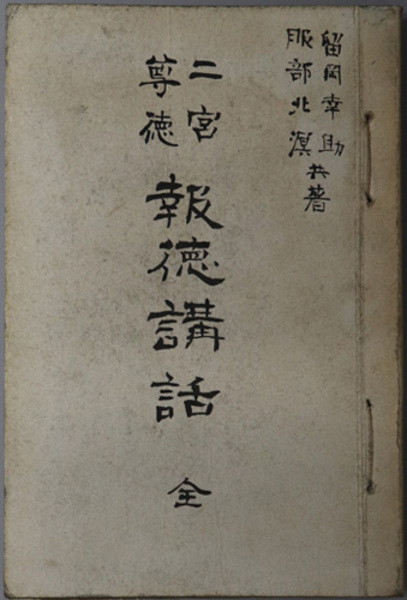 留岡幸助
服部北溟
共著
二宮
尊徳
報徳講話
全